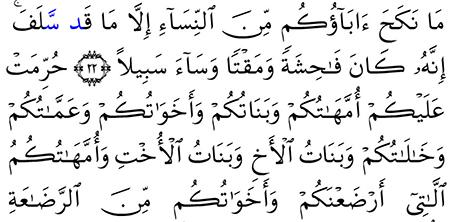 مَا نَكَحَ ءَابَآؤُكُم مِّنَ ٱلنِّسَآءِ إِلَّا مَا قَد سَّلَفَۚ
إِنَّهُۥ كَانَ فَـٰحِشَةً وَمَقْتًا وَسَآءَ سَبِيلًا ﴿٢٢﴾ حُرِّمَتْ
عَلَيْكُمْ أُمَّهَـٰتُكُمْ وَبَنَاتُكُمْ وَأَخَوَٰتُكُمْ وَعَمَّـٰتُكُمْ
وَخَـٰلَـٰتُكُمْ وَبَنَاتُ ٱلْأَخِ وَبَنَاتُ ٱلْأُخْتِ وَأُمَّهَـٰتُكُمُ
ٱلَّـٰتِىٓ أَرْضَعْنَكُمْ وَأَخَوَٰتُكُم مِّنَ ٱلرَّضَـٰعَةِ